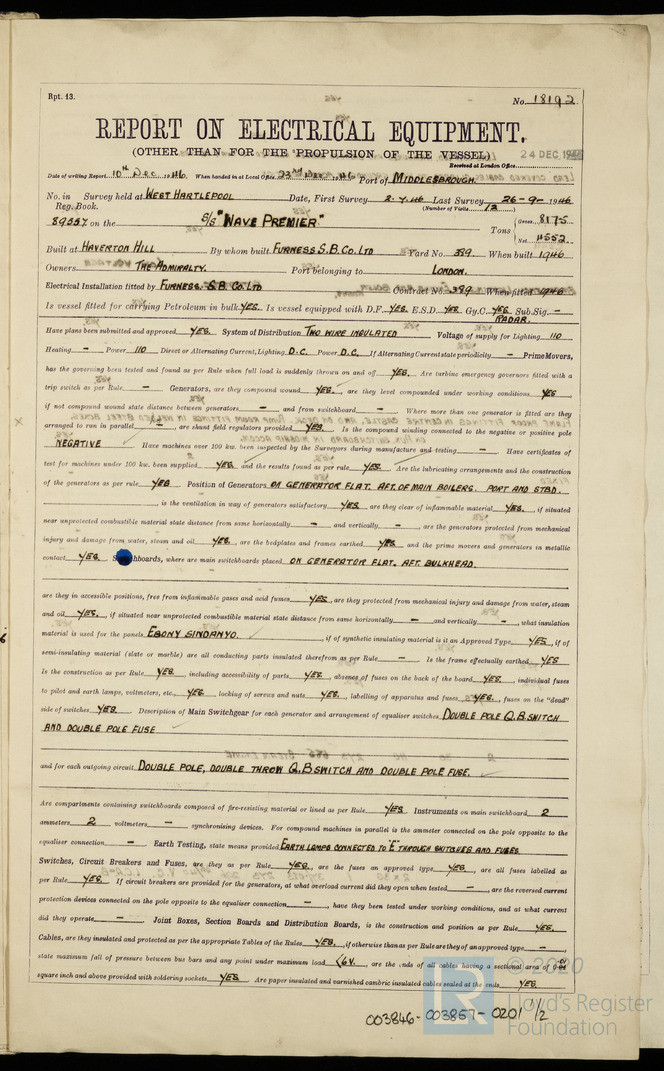 Rpt. 13.
No. 18192
REPORT ON ELECTRICAL EQUIPMENT.
(OTHER THAN FOR THE PROPULSION OF THE VESSEL)
24 DEC 1946
Received at London Office
Date of writing Report 10th Dec. 1946. When handed in at Local Office 23rd Dec 1946 Port of MIDDLESBROUGH.
No. in Survey held at WEST HARTLEPOOL Date, First Survey 2-7-46 Last Survey 26-9-1946
Reg. Book. (Number of Visits 13)
89557 on the S/S "WAVE PREMIER" Tons Gross 8175 Net 4552
Built at HAVERTON HILL By whom built FURNESS S.B. CO. LTD Yard No. 389 When built 1946
Owners THE ADMIRALTY. Port belonging to LONDON.
Electrical Installation fitted by FURNESS S.B. CO. LTD Contract No. 389 When fitted 1946
Is vessel fitted for carrying Petroleum in bulk YES. Is vessel equipped with D.F. YES. E.S.D. YES Gy.C. YES Sub.Sig. -
RADAR.
Have plans been submitted and approved YES. System of Distribution TWO WIRE INSULATED Voltage of supply for Lighting 110
Heating - Power 110 Direct or Alternating Current, Lighting D.C. Power D.C. If Alternating Current state periodicity - Prime Movers,
has the governing been tested and found as per Rule when full load is suddenly thrown on and off YES. Are turbine emergency governors fitted with a
trip switch as per Rule - Generators, are they compound wound YES., are they level compounded under working conditions YES,
if not compound wound state distance between generators - and from switchboard - Where more than one generator is fitted are they
arranged to run in parallel -, are shunt field regulators provided YES. Is the compound winding connected to the negative or positive pole
NEGATIVE Have machines over 100 kw. been inspected by the Surveyors during manufacture and testing - Have certificates of
test for machines under 100 kw. been supplied YES. and the results found as per rule YES. Are the lubricating arrangements and the construction
of the generators as per rule YES Position of Generators ON GENERATOR FLAT. AFT. OF MAIN BOILERS. PORT AND STBD.
, is the ventilation in way of generators satisfactory YES. are they clear of inflammable material YES., if situated
near unprotected combustible material state distance from same horizontally - and vertically -, are the generators protected from mechanical
injury and damage from water, steam and oil YES., are the bedplates and frames earthed YES and the prime movers and generators in metallic
contact YES. Switchboards, where are main switchboards placed ON GENERATOR FLAT. AFT. BULKHEAD.
are they in accessible positions, free from inflammable gases and acid fumes YES, are they protected from mechanical injury and damage from water, steam
and oil YES., if situated near unprotected combustible material state distance from same horizontally - and vertically -, what insulation
material is used for the panels EBONY SINDANYO., if of synthetic insulating material is it an Approved Type YES, if of
semi-insulating material (slate or marble) are all conducting parts insulated therefrom as per Rule - Is the frame effectually earthed YES
Is the construction as per Rule YES., including accessibility of parts YES., absence of fuses on the back of the board YES., individual fuses
to pilot and earth lamps, voltmeters, etc. YES. locking of screws and nuts YES., labelling of apparatus and fuses YES., fuses on the "dead"
side of switches YES. Description of Main Switchgear for each generator and arrangement of equaliser switches DOUBLE POLE Q.B. SWITCH
AND DOUBLE POLE FUSE
and for each outgoing circuit DOUBLE POLE, DOUBLE THROW Q.B SWITCH AND DOUBLE POLE FUSE.
Are compartments containing switchboards composed of fire-resisting material or lined as per Rule YES Instruments on main switchboard 2
ammeters 2 voltmeters - synchronising devices. For compound machines in parallel is the ammeter connected on the pole opposite to the
equaliser connection - Earth Testing, state means provided EARTH LAMPS CONNECTED TO "E" THROUGH SWITCHES AND FUSES
Switches, Circuit Breakers and Fuses, are they as per Rule YES., are the fuses an approved type YES., are all fuses labelled as
per Rule YES. If circuit breakers are provided for the generators, at what overload current did they open when tested -, are the reversed current
protection devices connected on the pole opposite to the equaliser connection -, have they been tested under working conditions, and at what current
did they operate - Joint Boxes, Section Boards and Distribution Boards, is the construction and position as per Rule YES.
Cables, are they insulated and protected as per the appropriate Tables of the Rules YES., if otherwise than as per Rule are they of an approved type -,
state maximum fall of pressure between bus bars and any point under maximum load <6V., are the ends of all cables having a sectional area of
square inch and above provided with soldering sockets YES Are paper insulated and varnished cambric insulated cables sealed at the ends YES.
© 2020
Lloyd's Register
Foundation
LR
003846-003857-0201 1/2